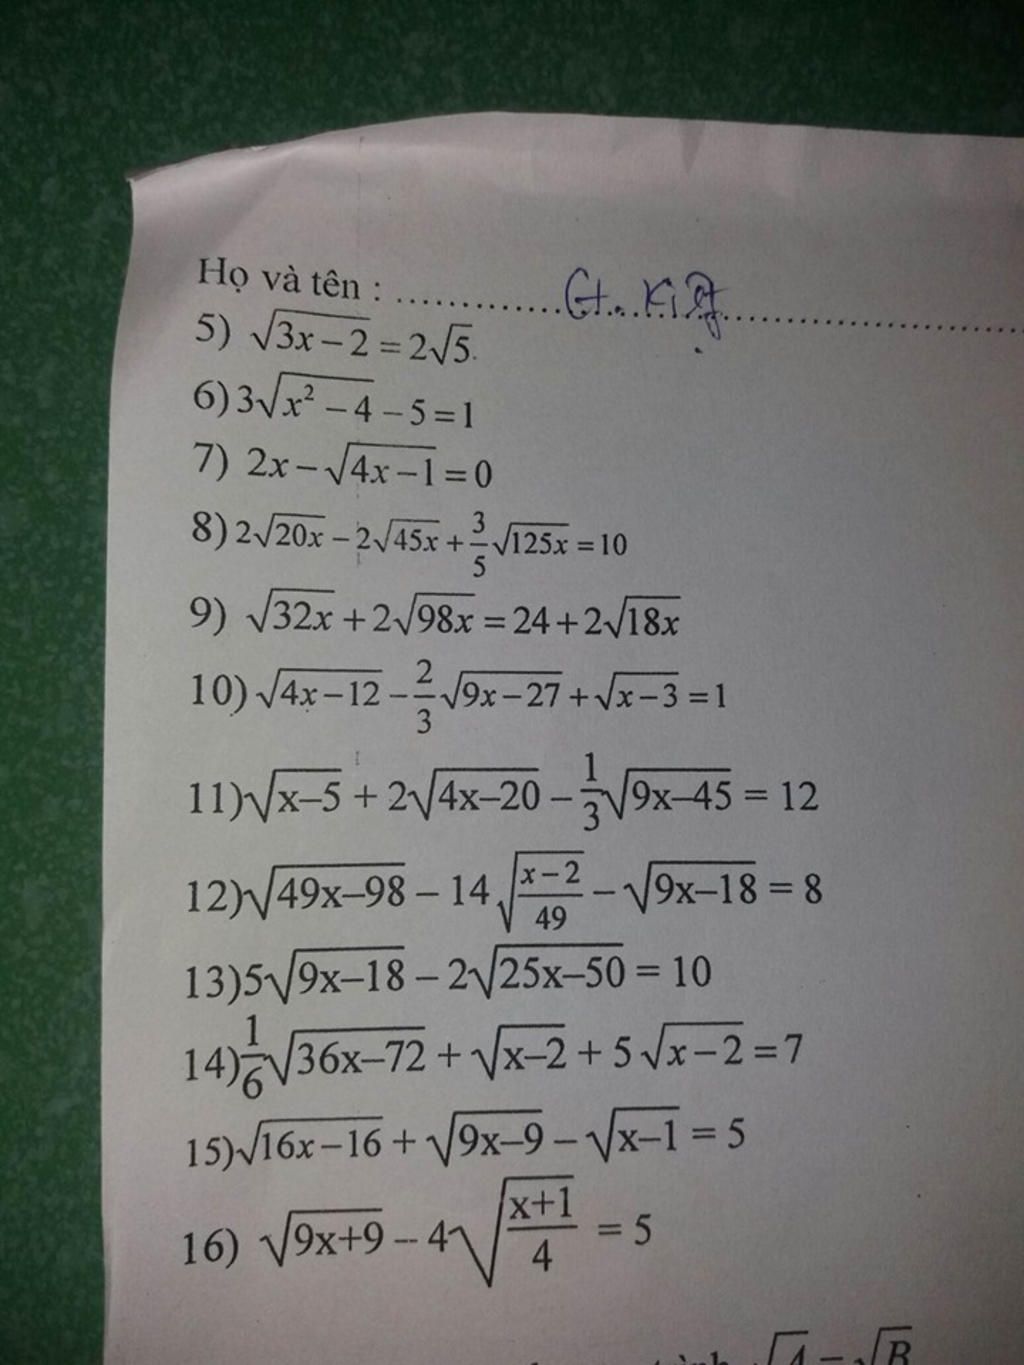 Họ và tên : ........................................
5) √(3x − 2) = 2√5.
6) 3√(x² − 4) − 5 = 1
7) 2x − √(4x − 1) = 0
8) 2√(20x) − 2√(45x) + 3/5 √(125x) = 10
9) √(32x) + 2√(98x) = 24 + 2√(18x)
10) √(4x − 12) − 2/3 √(9x − 27) + √(x − 3) = 1
11) √(x–5) + 2√(4x–20) − 1/3 √(9x–45) = 12
12) √(49x–98) − 14√((x − 2)/49) − √(9x–18) = 8
13) 5√(9x–18) − 2√(25x–50) = 10
14) 1/6 √(36x–72) + √(x–2) + 5√(x − 2) = 7
15) √(16x − 16) + √(9x–9) − √(x–1) = 5
16) √(9x+9) -- 4√((x+1)/4) = 5
√A = √B